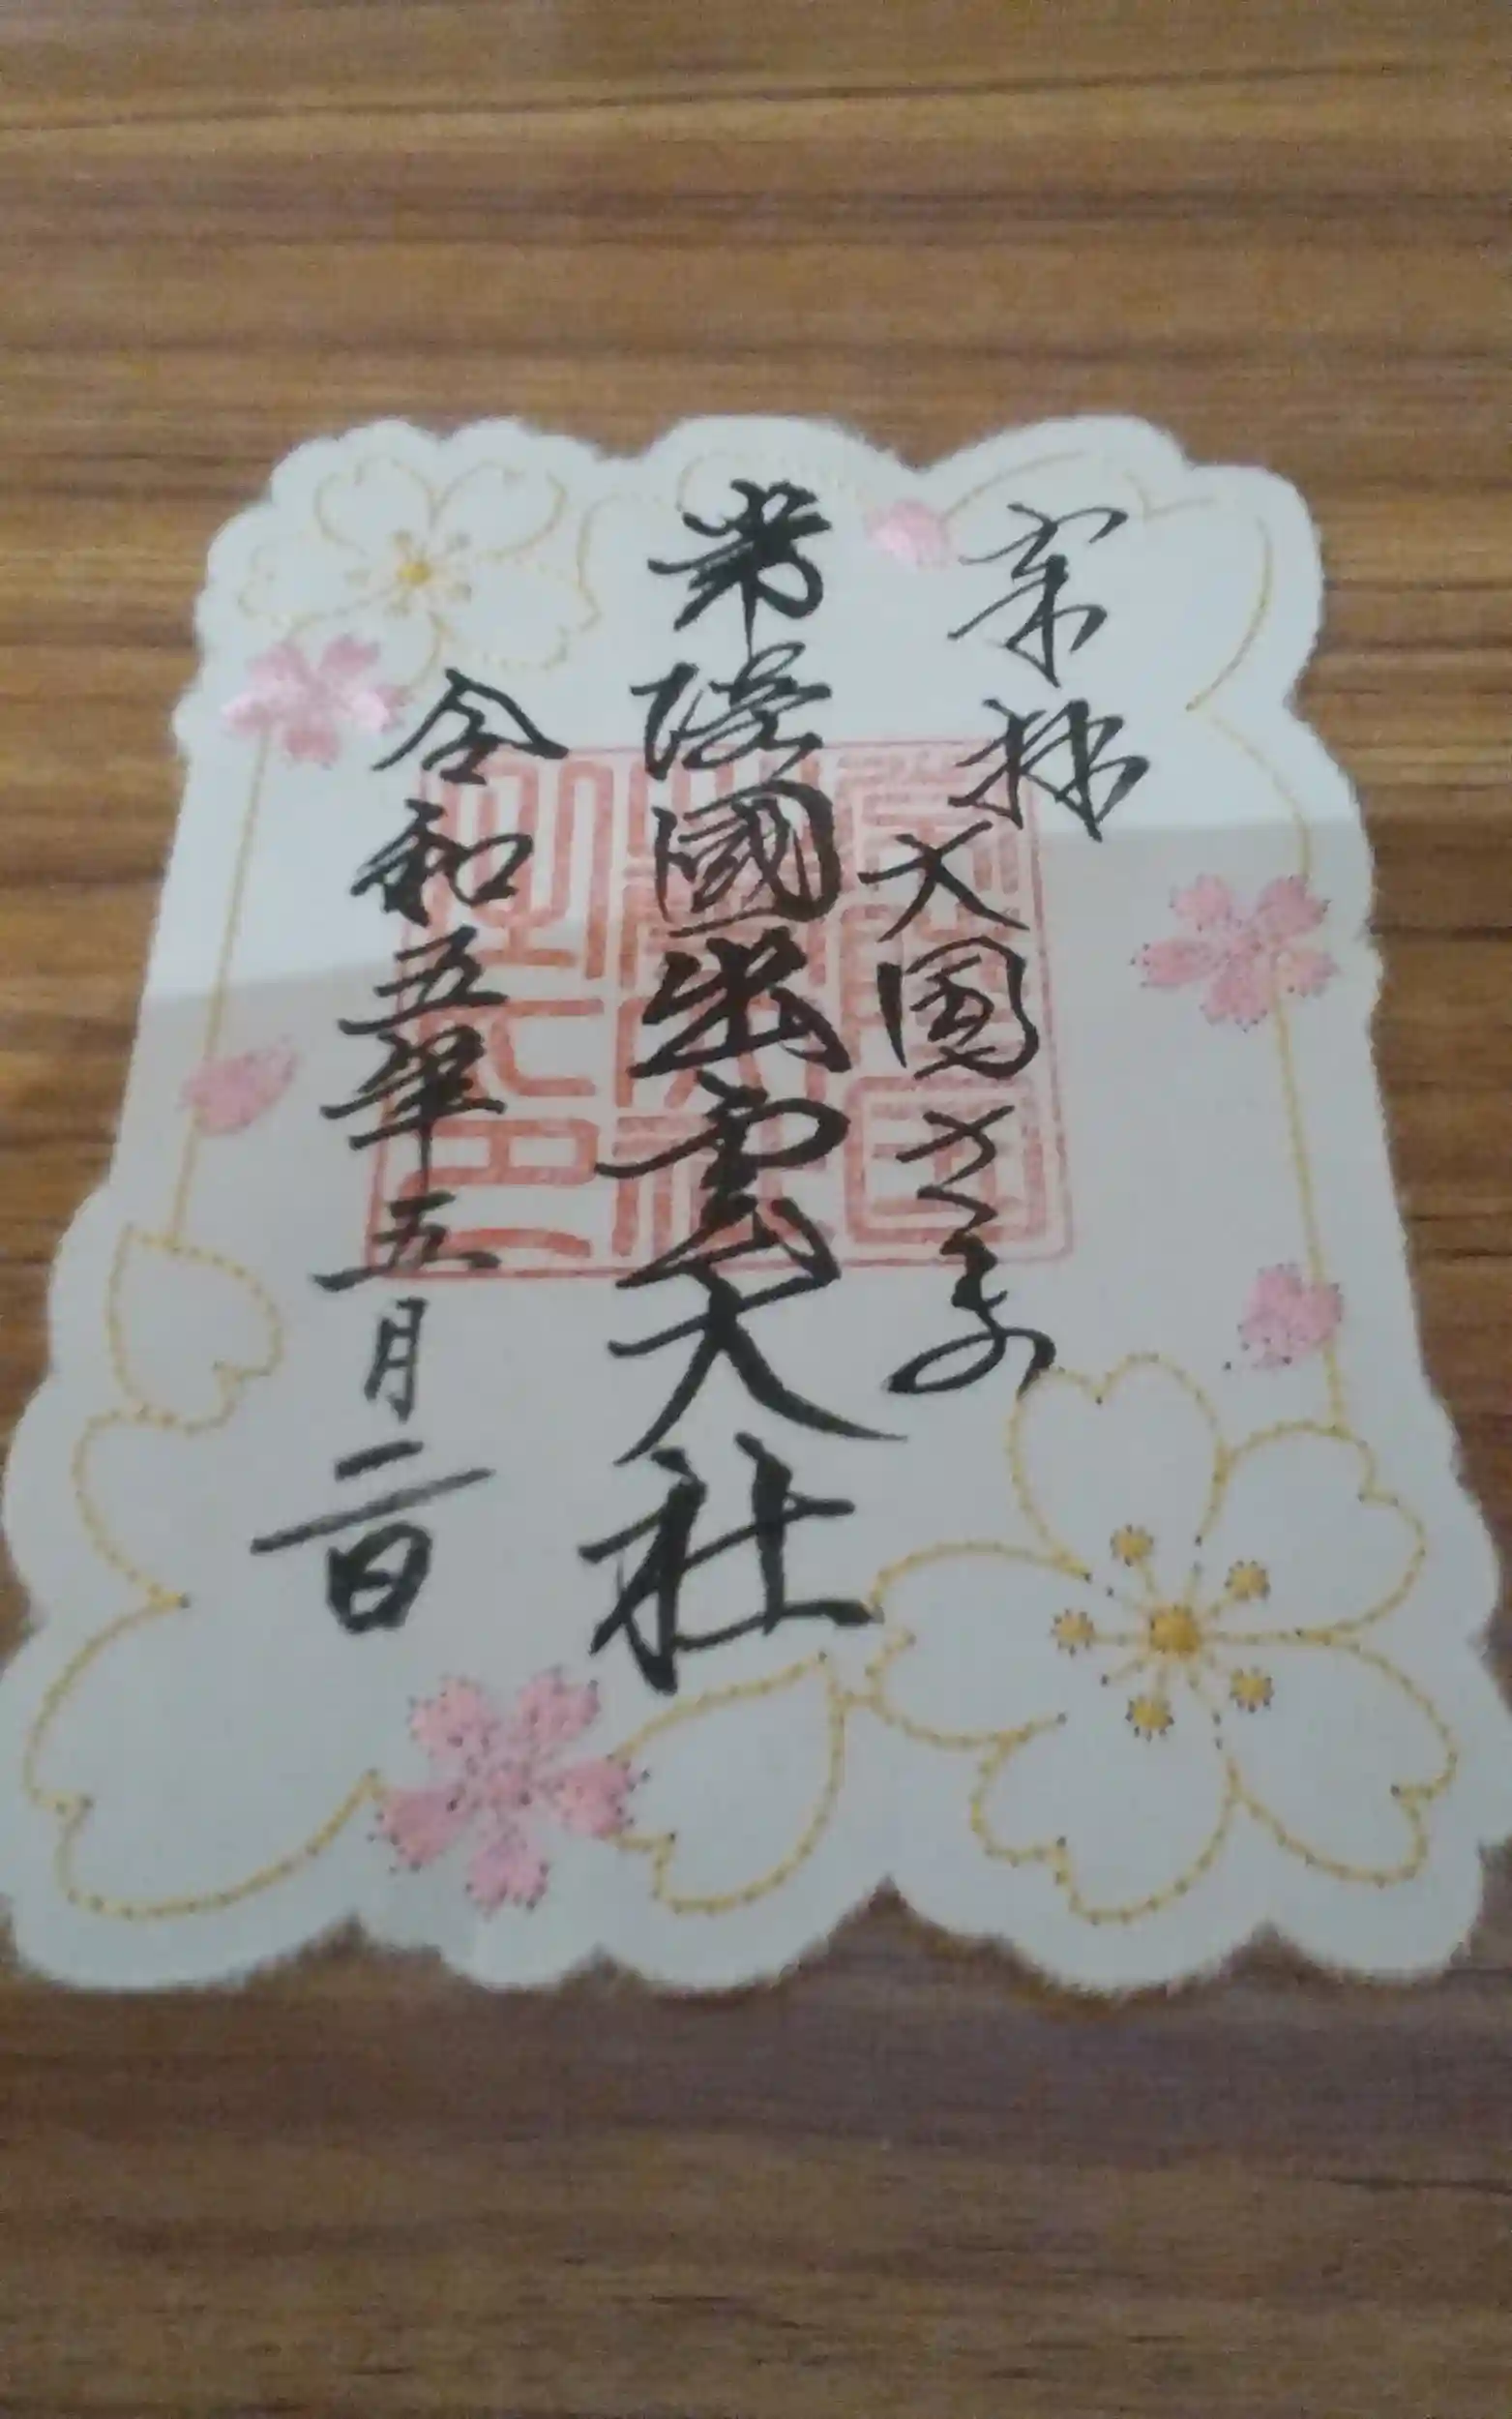 奉拝 大国さま
常陸國出雲大社
令和五年五月二日